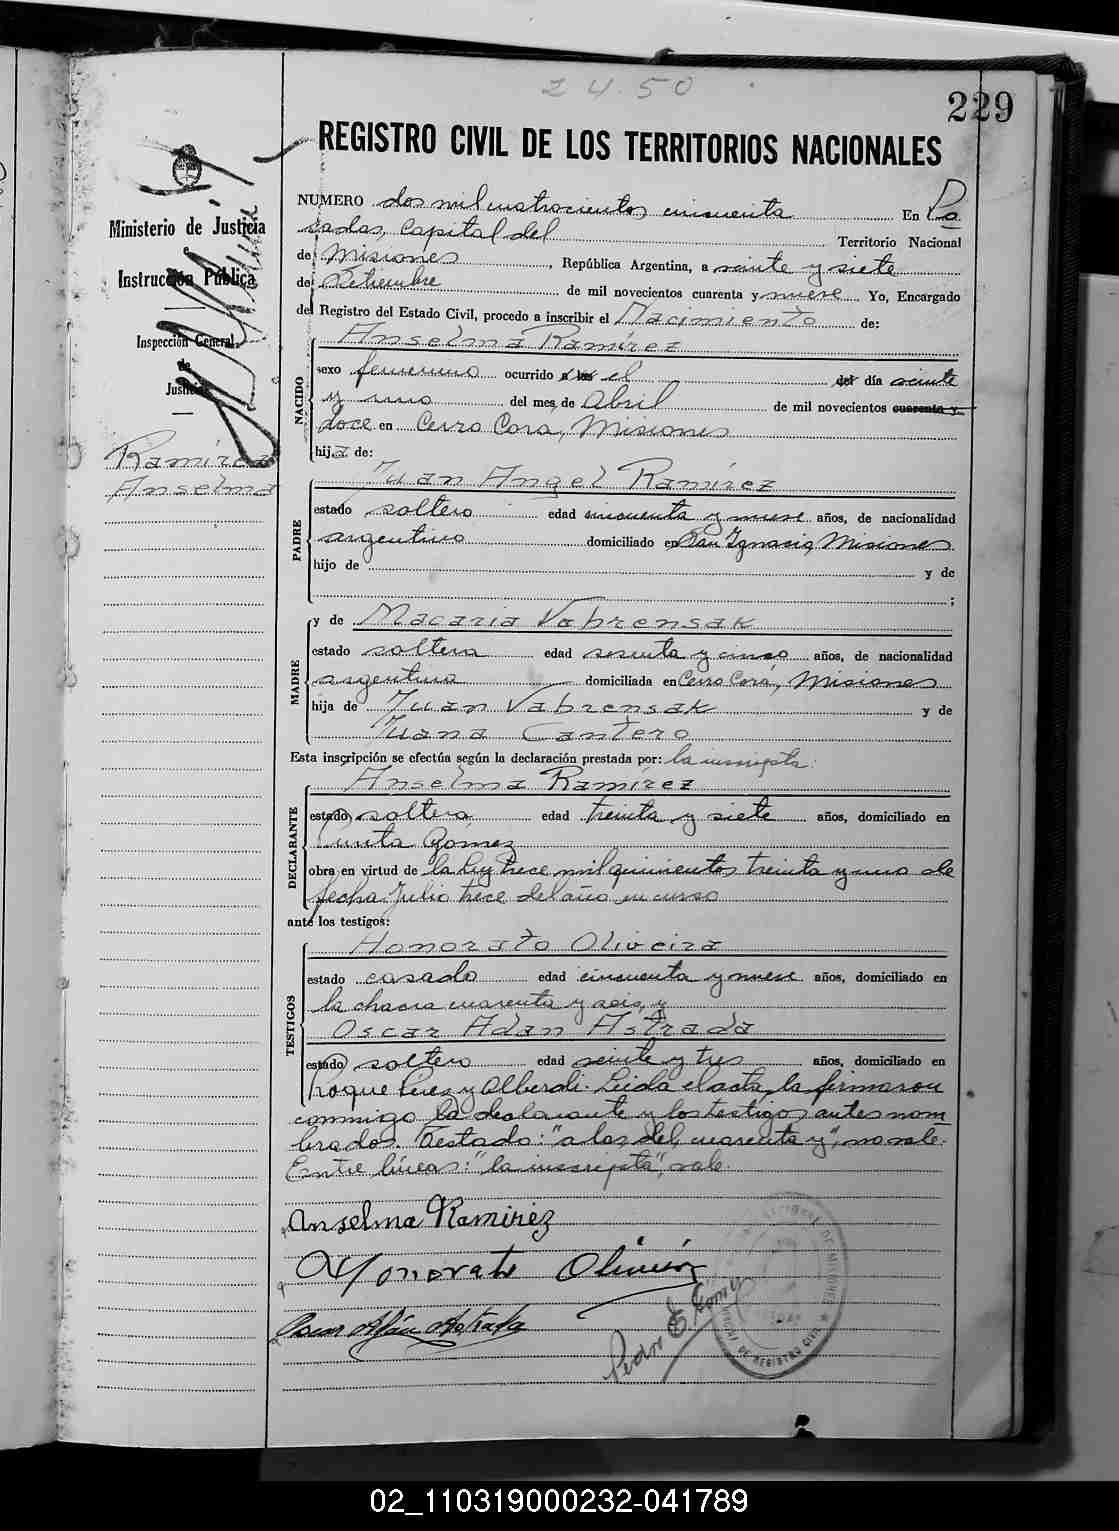 24.50
229
REGISTRO CIVIL DE LOS TERRITORIOS NACIONALES
Ministerio de Justicia
e
Instrucción Pública
Inspección General
de
Justicia
Ramírez
Anselma
NUMERO dos mil cuatrocientos cincuenta En Po
sadas, Capital del Territorio Nacional
de Misiones, República Argentina, a veinte y siete
de Setiembre de mil novecientos cuarenta y nueve Yo, Encargado
del Registro del Estado Civil, procedo a inscribir el Nacimiento de:
NACIDO
Anselma Ramírez
sexo femenino ocurrido a las el del día veinte
y uno del mes de Abril de mil novecientos cuarenta y
doce en Cerro Corá, Misiones
hija de:
PADRE
Juan Angel Ramírez
estado soltero edad cincuenta y nueve años, de nacionalidad
argentino domiciliado en San Ignacio, Misiones
hijo de y de
;
MADRE
y de Macaria Vabrensak
estado soltera edad sesenta y cinco años, de nacionalidad
argentina domiciliada en Cerro Corá, Misiones
hija de Juan Vabrensak y de
Juana Cantero
Esta inscripción se efectúa según la declaración prestada por: la inscripta:
DECLARANTE
Anselma Ramírez
estado soltera edad treinta y siete años, domiciliado en
Punta Gómez
obra en virtud de la ley trece mil quinientos treinta y uno de
fecha Julio trece del año en curso
ante los testigos:
TESTIGOS
Honorato Oliveira
estado casado edad cincuenta y nueve años, domiciliado en
la chacra cuarenta y seis, y
Oscar Adan Astrada
estado soltero edad veinte y tres años, domiciliado en
Roque Perez y Alberdi. Leida el acta, la firmaron
conmigo la declarante y los testigos antes nom
brados. Testado: "a las, del, cuarenta y", no vale.
Entre líneas: "la inscripta", vale.
Anselma Ramirez
Honorato Oliveira
Oscar Adán Astrada
Pedro E. Gomez
02_110319000232-041789